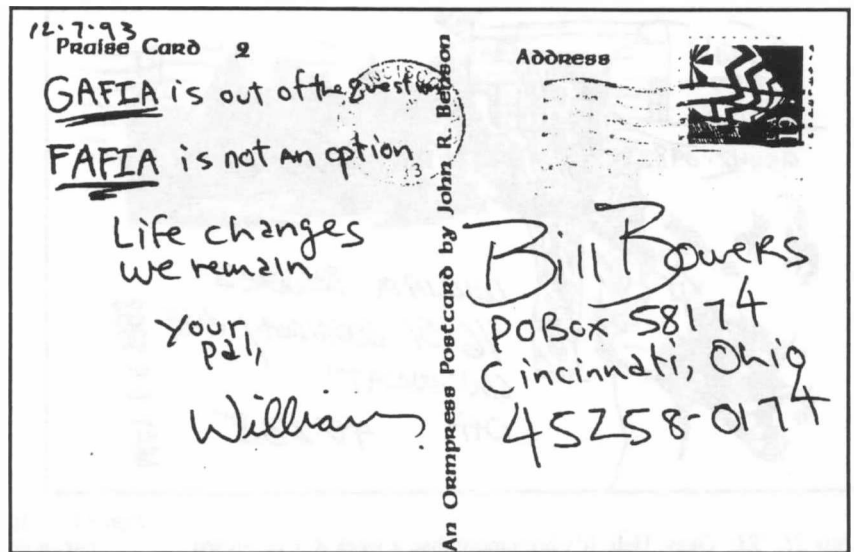 12.7.93
Praise Card 2
GAFIA is out of the question
FAFIA is not an option
Life changes
we remain
your
pal,
William
An Ormpress Postcard by John R. Benson
Address
19
Bill Bowers
PO Box 58174
Cincinnati, Ohio
45258-0174